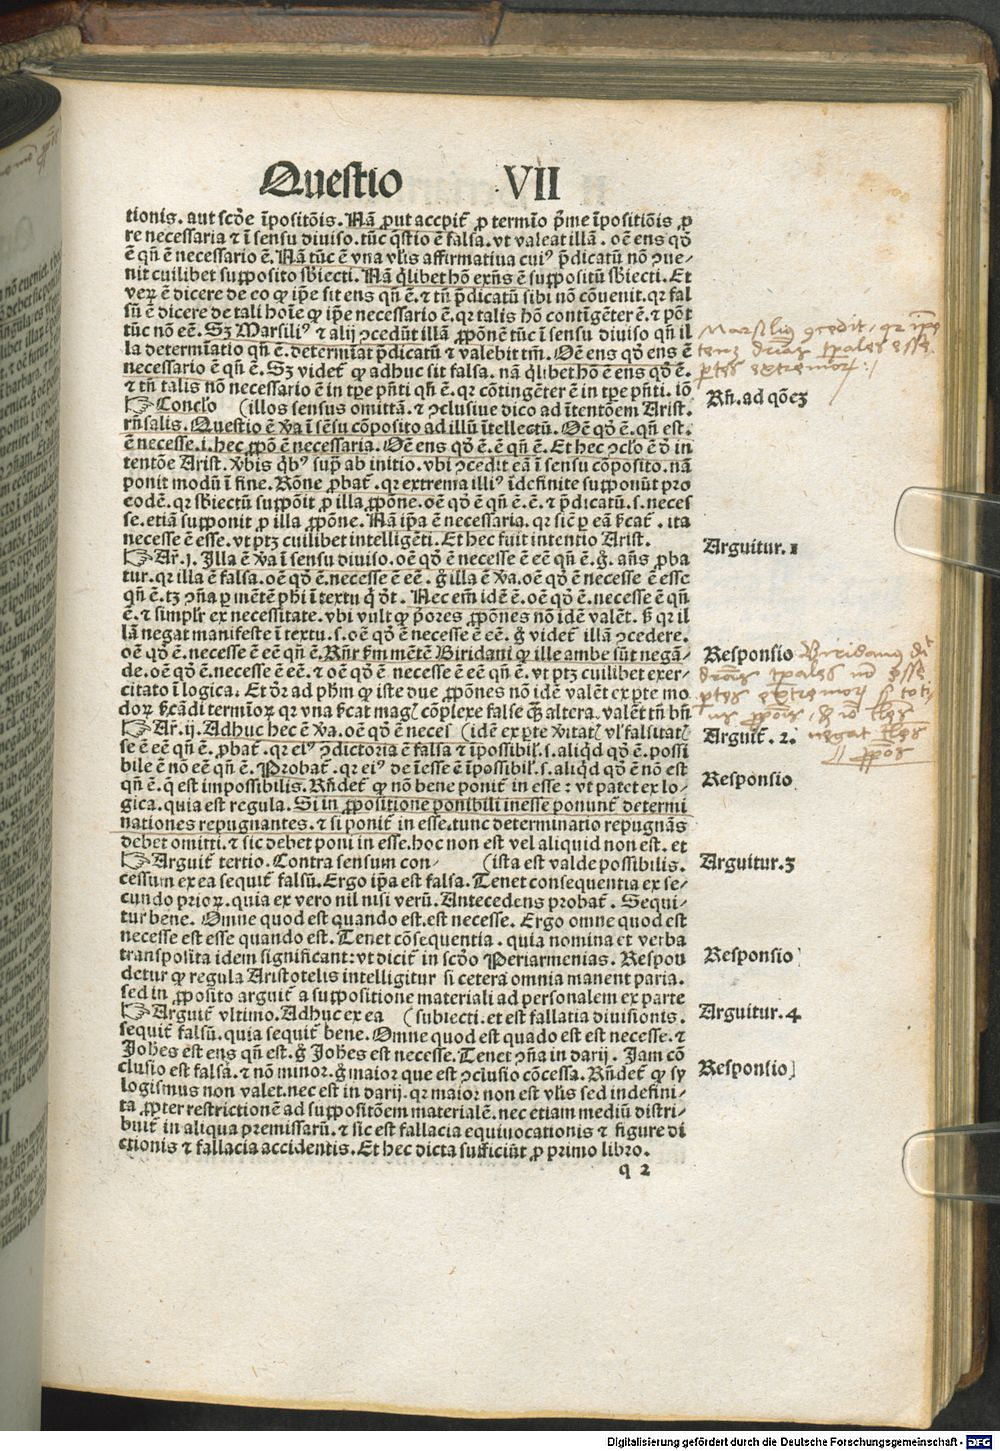 Questio VII
tionis. aut scḋe īpositōis. Nā prout accpit̄ ꝓ termīo p̄me īpositiōis ꝓ
re necessaria ⁊ ī sensu diuiso. tūc q̄stio ē falsa. vt valeat illā. oē ens qḋ
ē qn̄ ē necessario ē. Nā tūc ē vna vl̄is affirmatiua cuiꝰ p̄dicatū nō ꝯue-
nit cuilibet supposito sbiecti. Nā q̄libet hō exn̄s ē suppositū sbiecti. Et
veꝝ ē dicere de eo ꝙ ip̄e sit ens qn̄ ē. ⁊ tn̄ p̄dicatū sibi nō cōuenit. qꝛ fal
sū ē dicere de tali hoīe ꝙ ip̄e necessario ē. qꝛ talis hō contigēter ē. ⁊ pōt
tūc nō eē. Sꝫ Marsiliꝰ ⁊ alij ꝯcedūt illā ꝓpōnē tūc ī sensu diuiso qn̄ il
la determīatio qn̄ ē. determīat p̄dicatū ⁊ valebit tm̄. Oē ens qḋ ens ē
necessario ē qn̄ ē. Sꝫ videt̄ ꝙ adhuc sit falsa. nā q̄libet hō ē ens qḋ ē.
⁊ tn̄ talis nō necessario ē in tꝑe pn̄ti qn̄ ē. qꝛ cōtingēter ē in tꝑe pn̄ti. iō
☞ Conclo (illos sensus omittā. ⁊ ꝯclusiue dico ad ītentōem Arist.
rn̄salis. Questio ē ꝟa ī sēsu cōposito ad illū ītellectū. Oē qḋ ē. qn̄ est.
ē necesse. i. hec ꝓpō ē necessaria. Oē ens qḋ ē. ē qn̄ ē. Et hec ꝯclo ē ḋ in
tentōe Arist. ꝟbis q̄bꝰ supͣ ab initio. vbi ꝯcedit eā ī sensu cōposito. nā
ponit modū ī fine. Rōne ꝓbat̄. qꝛ extrema illiꝰ īdefinite supponūt pro
eodē. qꝛ sbiectū suppōit ꝓ illa ꝓpōne. oē qḋ ē qn̄ ē. ē. ⁊ p̄dicatū. s. neces
se. etiā supponit ꝓ illa ꝓpōne. Nā ip̄a ē necessaria. qꝛ sic ꝑ eā ſ̄cat̄. ita
necesse ē esse. vt ptꝫ cuilibet intelligēti. Et hec fuit intentio Arist.
☞ Ar̄. j. Illa ē ꝟa ī sensu diuiso. oē qḋ ē necesse ē eē qn̄ ē. ḡ. an̄s ꝓba
tur. qꝛ illa ē falsa. oē qḋ ē. necesse ē eē. ḡ illa ē ꝟa. oē qḋ ē necesse ē esse
qn̄ ē. tꝫ ꝯn̄a ꝑ mētē phi ī textu q̄ ḋt. Nec em̄ idē ē. oē qḋ ē. necesse ē qn̄
ē. ⁊ simplr̄ ex necessitate. vbi vult ꝙ p̄ores ꝓpōnes nō idē valēt. ſ̄ qꝛ il
lā negat manifeste ī textu. s. oē qḋ ē necesse ē eē. ḡ videt̄ illā ꝯcedere.
oē qḋ ē. necesse ē eē qn̄ ē. Rn̄r ſm mētē Biridani ꝙ ille ambe sūt negā-
de. oē qḋ ē. necesse ē eē. ⁊ oē qḋ ē necesse ē eē qn̄ ē. vt ptꝫ cuilibet exer-
citato ī logica. Et ḋr ad phm̄ ꝙ iste due ꝓpōnes nō idē valēt ex ꝑte mo
doꝝ ſ̄cādi termīoꝝ qꝛ vna ſ̄cat magꝭ cōplexe false qꝫ altera. valēt tn̄ bn̄
☞ Ar̄. ij. Adhuc hec ē ꝟa. oē qḋ ē neces (idē ex ꝑte ꝟitatꝭ vl̓ falsitatꝭ
se ē eē qn̄ ē. ꝓbat̄. qꝛ eiꝰ ꝯdictoria ē falsa ⁊ īpossibil̓. s. aliqḋ qḋ ē. possi
bile ē nō eē qn̄ ē. Probat̄. qꝛ eiꝰ de īesse ē īpossibil̓. s. aliqḋ qḋ ē nō est
qn̄ ē. q̇ est impossibilis. Rn̄det̄ ꝙ nō bene ponit̄ in esse: vt patet ex lo-
gica. quia est regula. Si in ꝓpositione ponibili inesse ponunt̄ determi
nationes repugnantes. ⁊ si ponit̄ in esse. tunc determinatio repugnās
debet omitti. ⁊ sic debet poni in esse. hoc non est vel aliquid non est. et
☞ Arguit̄ tertio. Contra sensum con- (ista est valde possibilis.
cessum ex ea sequit̄ falsū. Ergo ip̄a est falsa. Tenet consequentia ex se-
cundo prioꝝ. quia ex vero nil nisi verū. Antecedens probat̄. Sequi-
tur bene. Omne quod est quando est. est necesse. Ergo omne quod est
necesse est esse quando est. Tenet cōsequentia. quia nomina et verba
transposita idem significant: vt dicit̄ in scḋo Periarmenias. Respon
detur ꝙ regula Aristotelis intelligitur si cetera omnia manent paria.
sed in ꝓposito arguit̄ a suppositione materiali ad personalem ex parte
☞ Arguit̄ vltimo. Adhuc ex ea (subiecti. et est fallatia diuisionis.
sequit̄ falsū. quia sequit̄ bene. Omne quod est quādo est est necesse. ⁊
Joh̄es est ens qn̄ est. ḡ Joh̄es est necesse. Tenet ꝯn̄a in darij. Jam cō
clusio est falsa. ⁊ nō minor. ḡ maior que est ꝯclusio cōcessa. Rn̄det̄ ꝙ sy
logismus non valet. nec est in darij. qꝛ maior non est vl̄is sed indefini-
ta ꝓpter restrictionē ad suppositōem materialē. nec etiam mediū distri-
buit̄ in aliqua premissarū. ⁊ sic est fallacia equiuocationis ⁊ figure di
ctionis ⁊ fallacia accidentis. Et hec dicta sufficiūt ꝓ primo libro.
q 2
Marsiliꝰ ꝯcedit, qꝛ
esse
ꝑtes extremoꝝ :/
Rn̄. ad qōeꝫ
Arguitur. 1
Responsio Biridanus
nō esse
ꝑtes extremoꝝ
Arguit̄. 2. negat
Responsio
Arguitur. 3
Responsio
Arguitur. 4
Responsio
Digitalisierung gefördert durch die Deutsche Forschungsgemeinschaft - DFG